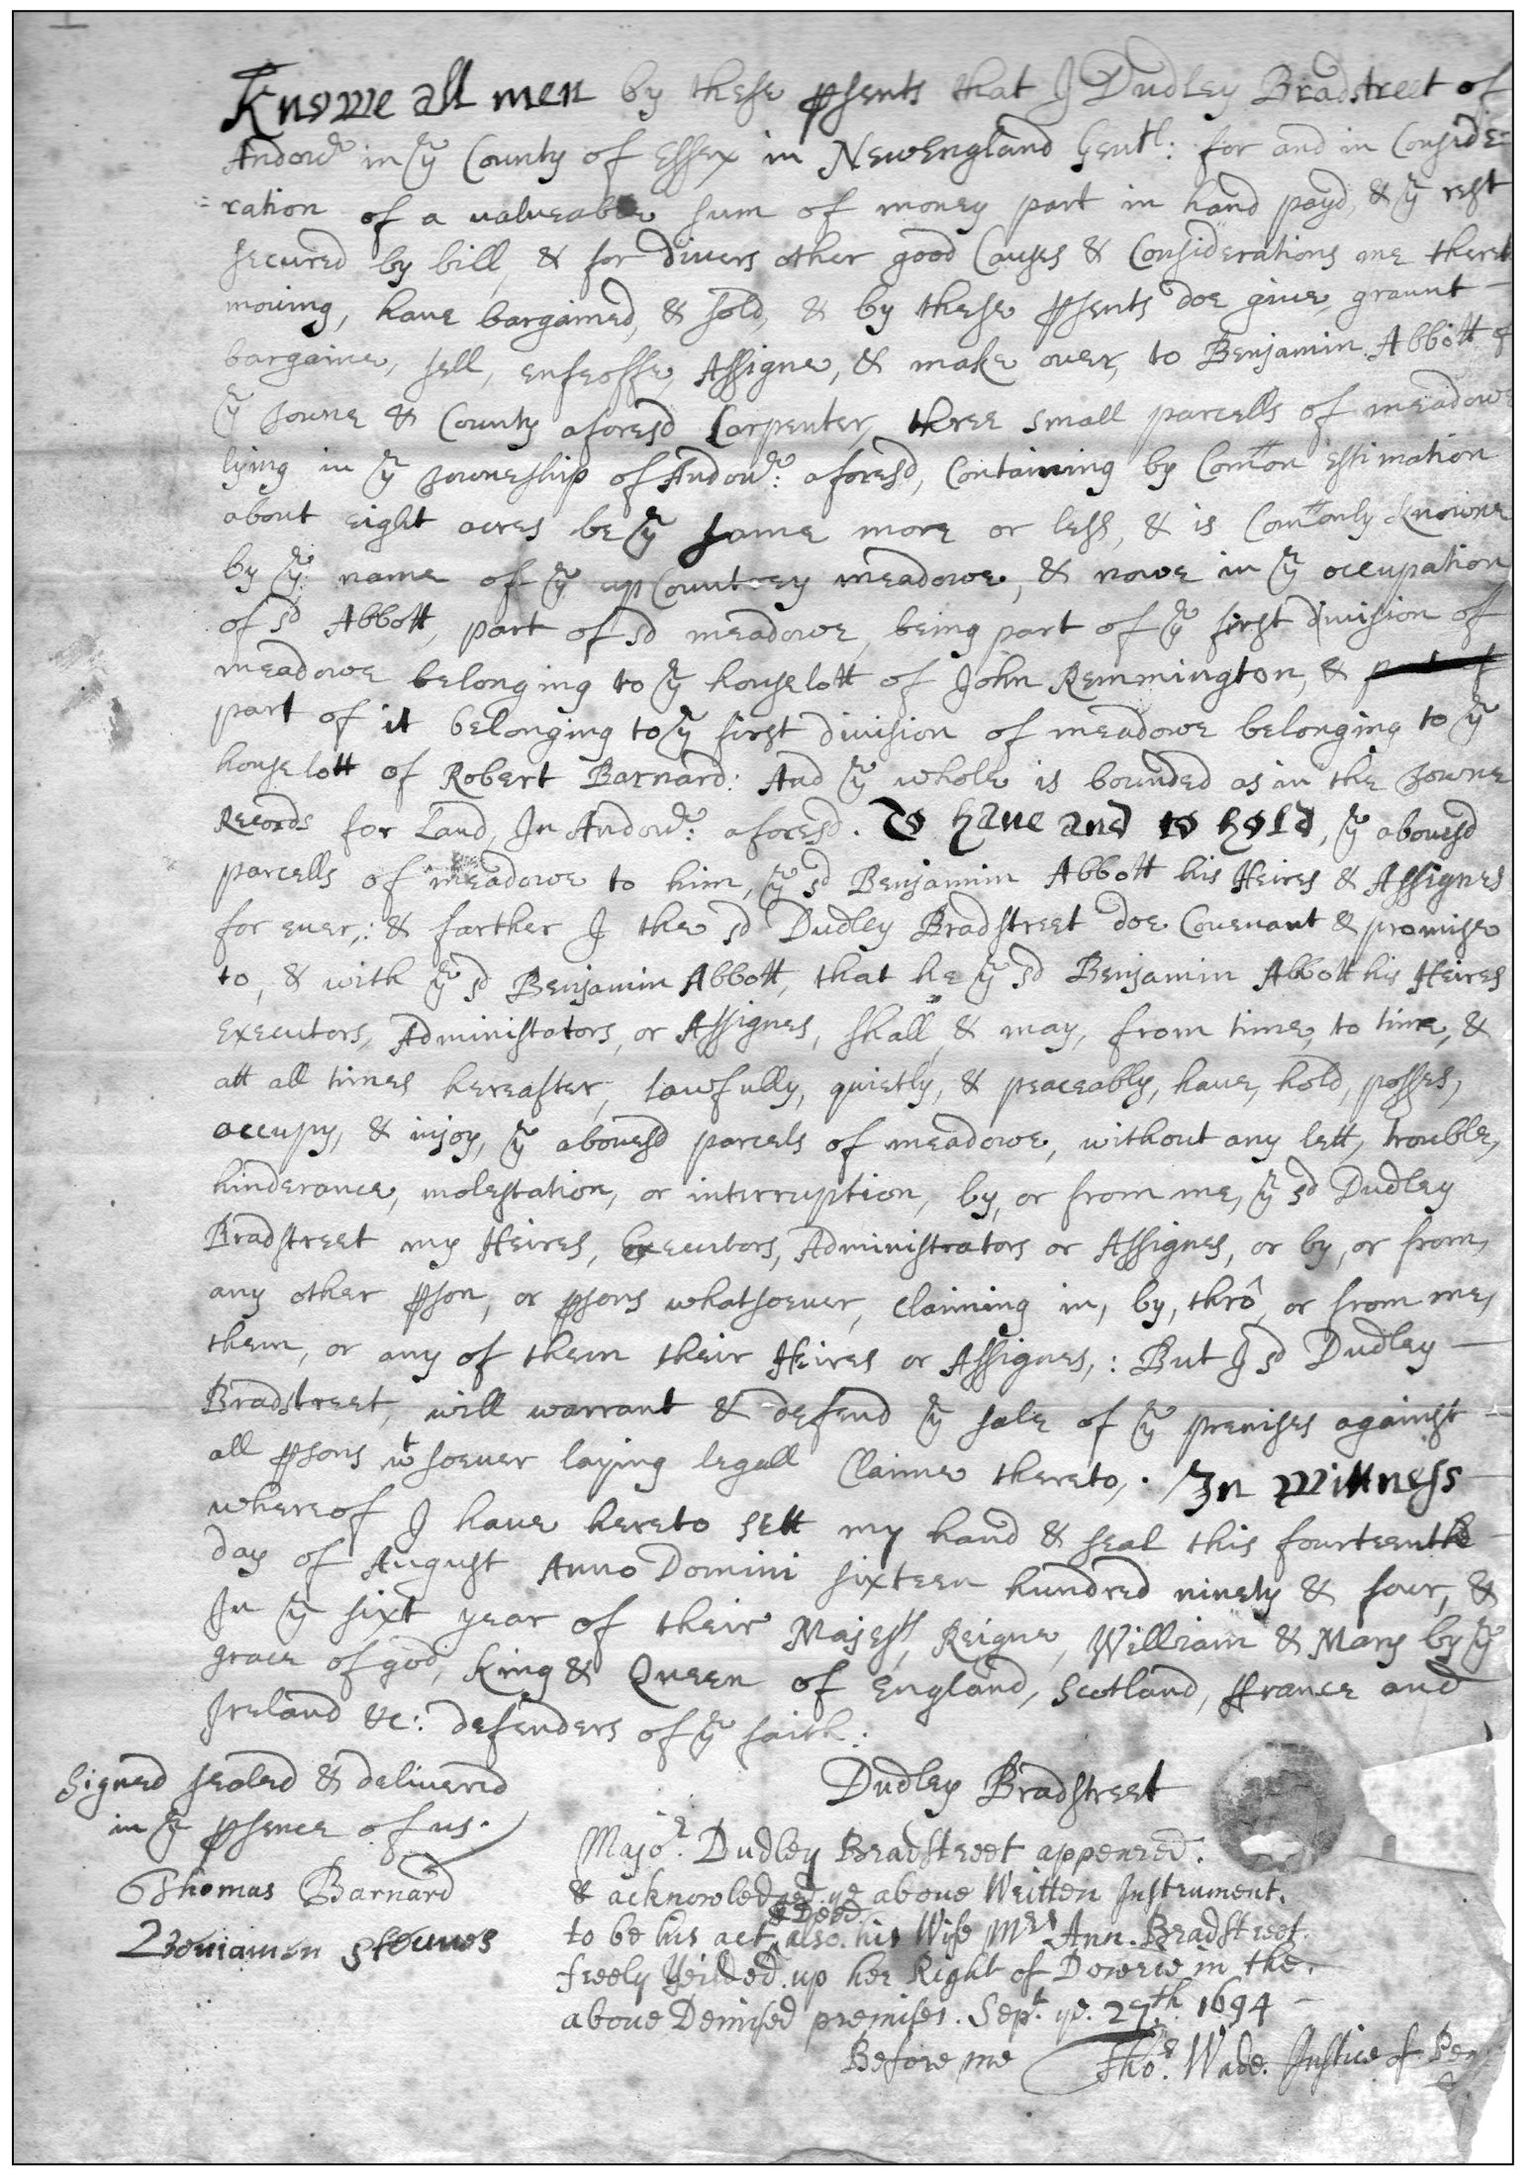 Knowe all men by these psents that I Dudley Bradstreet of
Andovr in ye County of Essex in NewEngland Gentl: for and in Conside=
=ration of a valueable sum of money part in hand payd, & ye rest
secured by bill, & for divers other good Causes & Considerations me there
moving, have bargained, & sold, & by these psents doe give, graunt
bargaine, sell, enfeoffe, Assigne, & make over, to Benjamin Abbott of
ye Towne & County aforesd Carpenter, three small parcells of meadowe
lying in ye Towneship of Andovr: aforesd, Containing by Comon estimation
about eight acres be ye same more or less, & is Comonly Knowne
by ye: name of ye up Countrey meadowe, & nowe in ye occupation
of sd Abbott, part of sd meadowe, being part of ye first division of
meadowe belonging to ye houselott of John Remmington, & part of
part of it belonging to ye first division of meadowe belonging to ye
house lott of Robert Barnard: And ye whole is bounded as in the Towne
Records for Land, In Andovr: aforesd. To have and to hold, ye abovesd
parcells of meadowe to him, ye sd Benjamin Abbott his Heires & Assignes
for ever,: & farther I the sd Dudley Bradstreet doe Covenant & promise
to, & with ye sd Benjamin Abbott, that he ye sd Benjamin Abbott his Heires
Executors, Administators, or Assignes, shall, & may, from time, to time, &
att all times hereafter, lawfully, quietly, & peaceably, have, hold, posses,
occupy, & injoy, ye abovesd parcels of meadowe, without any lett, trouble,
hinderance, molestation, or interruption, by, or from me, ye sd Dudley
Bradstreet my Heires, Executors, Administrators or Assignes, or by, or from,
any other pson, or psons whatsoever, claiming in, by, thrô, or from me,
them, or any of them their Heires or Assignes,: But I sd Dudley
Bradstreet, will warrant & defend ye sale of ye premises against
all psons wt soever laying legall Claime thereto,. In Wittness
whereof I have hereto sett my hand & seal this fourteenth
day of August Anno Domini sixteen hundred ninety & four, &
In ye sixt year of their Majests Reigne, William & Mary by ye
grace of god, King & Queen of England, Scotland, ffrance and
Ireland &c: defenders of ye faith:
Signed sealed & delivered
in ye psence of us.
Thomas Barnard
Beniamin Steuens
Dudley Bradstreet
Major. Dudley Bradstreet appeared.
& acknowledged ye above Written Instrument.
to be his act & Deed. also his Wife Mrs Ann. Bradstreet.
freely Yeilded up her Right of Dowrie in the.
above Demised premises. Sept. ye. 27th 1694
Before me Tho.s Wade. Justice of Pea